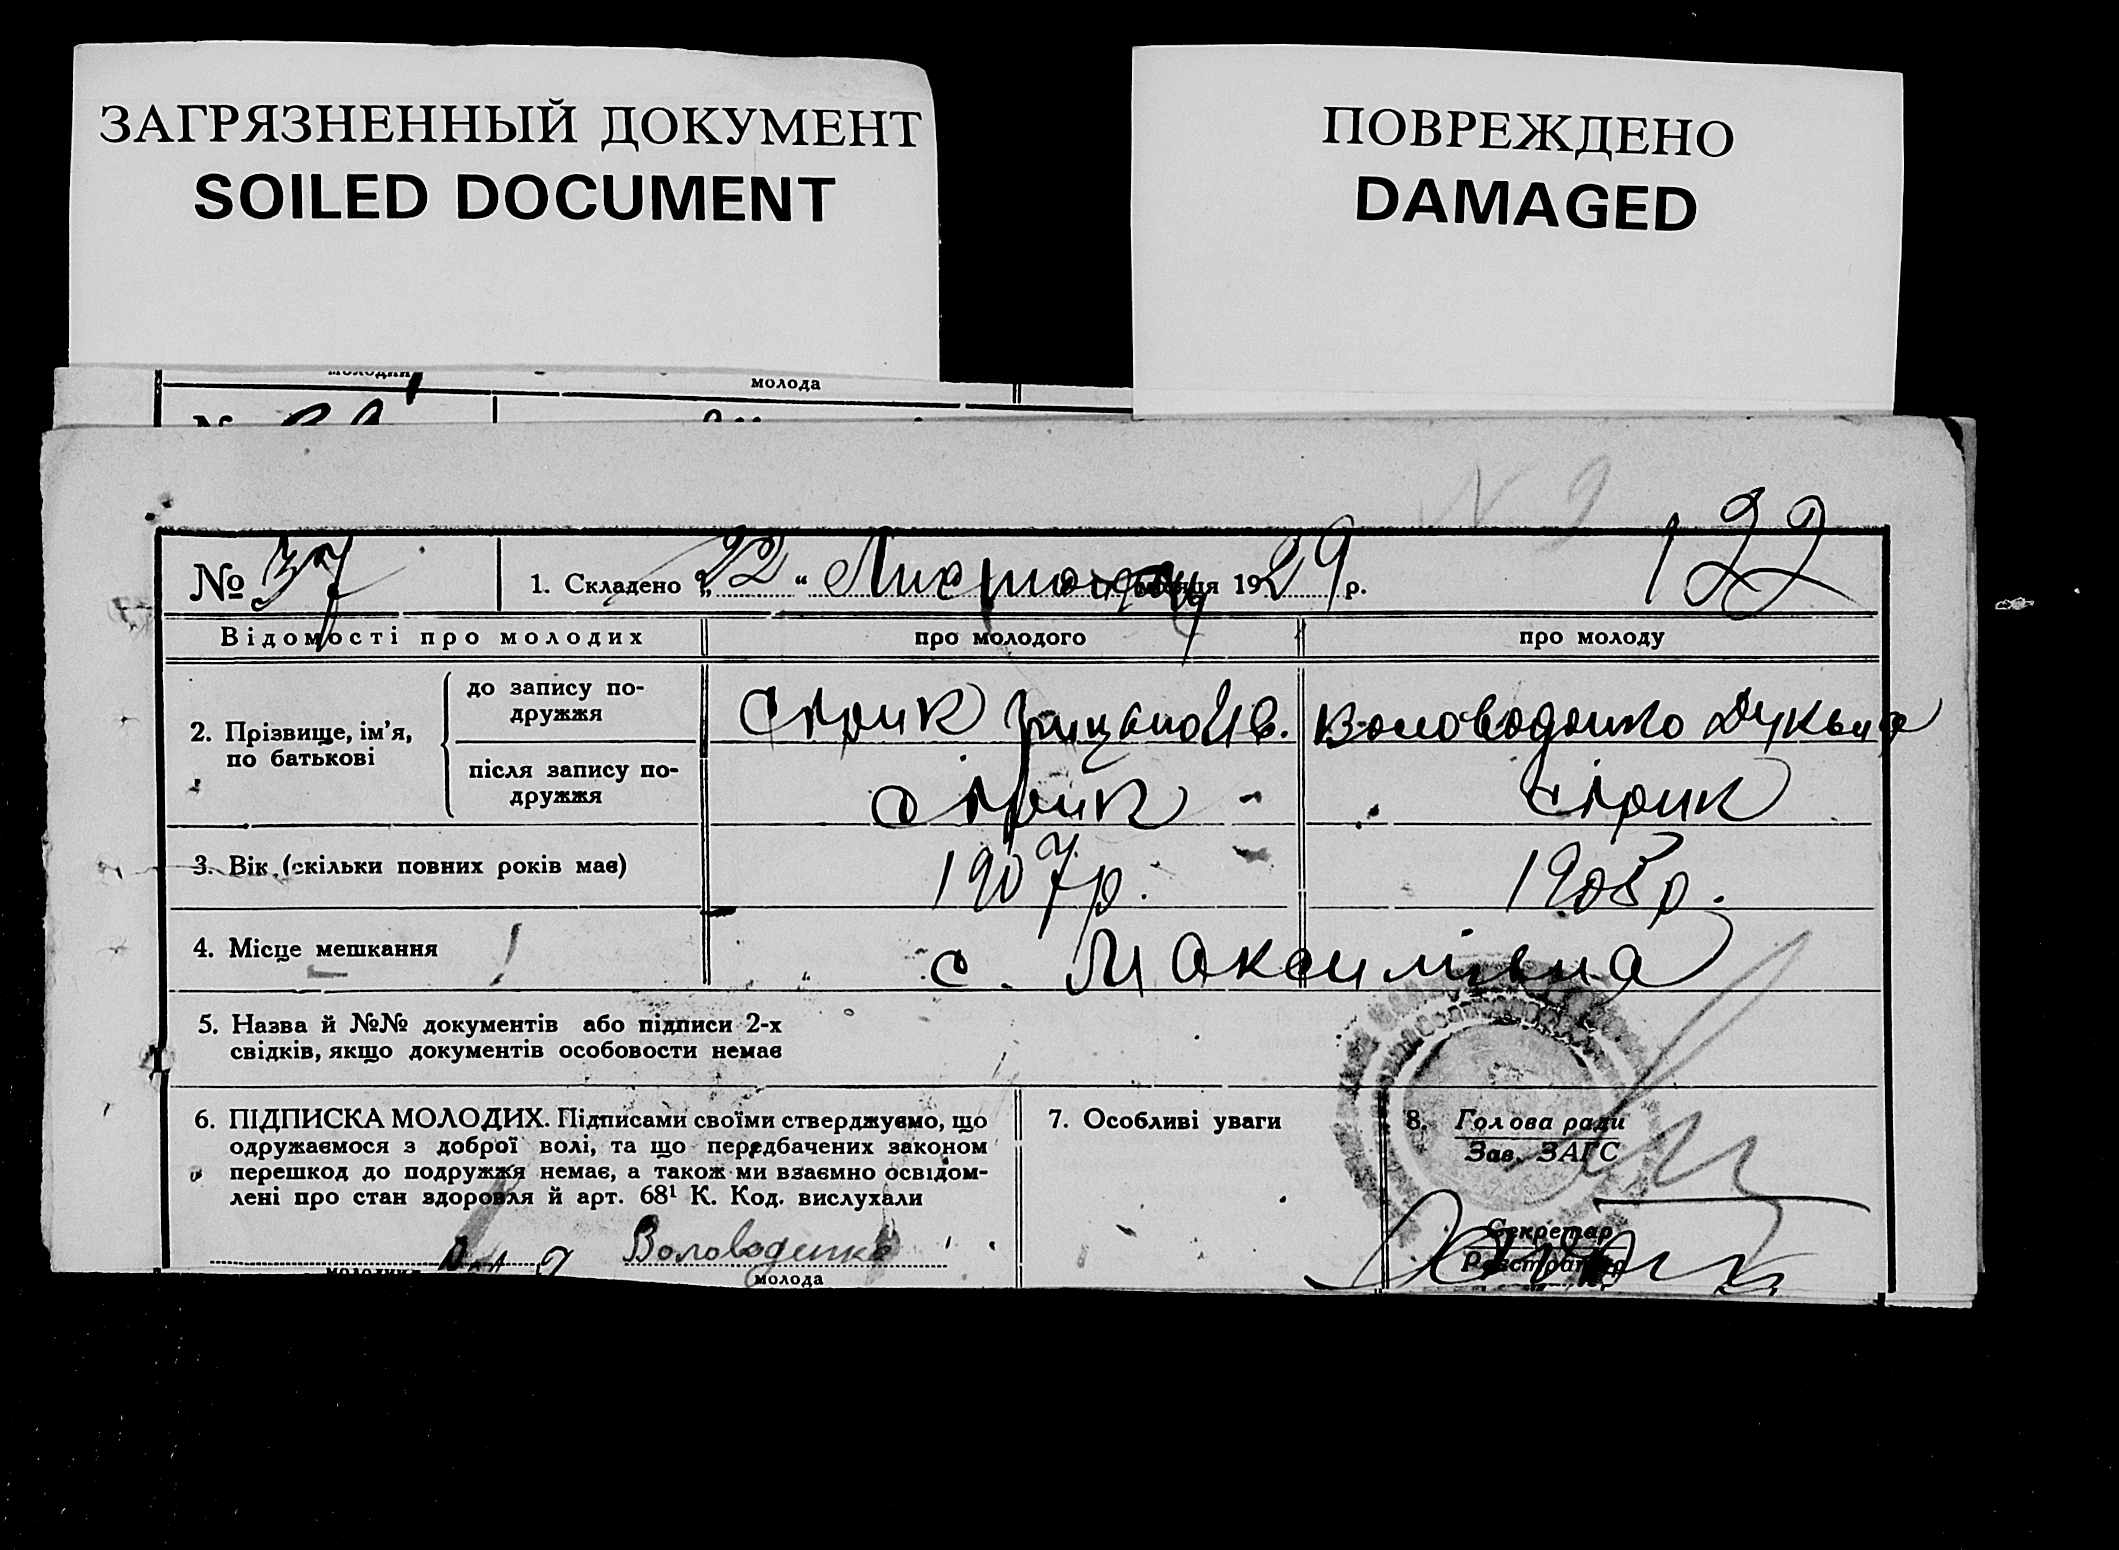 ЗАГРЯЗНЕННЫЙ ДОКУМЕНТ
SOILED DOCUMENT
ПОВРЕЖДЕНО
DAMAGED
молодий
молода
122
№ 37
1. Складено „22“ Листопаду місяця 1929 р.
Відомості про молодих
про молодого
про молоду
2. Прізвище, ім’я,
по батькові
до запису по-
дружжя
Стрик Ів.
Володенко
після запису по-
дружжя
Стрик
Стрик
3. Вік (скільки повних років має)
1907 р.
1908 р.
4. Місце мешкання
с. Максимівка
5. Назва й №№ документів або підписи 2-х
свідків, якщо документів особовости немає
6. ПІДПИСКА МОЛОДИХ. Підписами своїми стверджуємо, що
одружаємося з доброї волі, та що передбачених законом
перешкод до подружжя немає, а також ми взаємно освідом-
лені про стан здоровля й арт. 68¹ К. Код. вислухали
Володенко
молодий
молода
7. Особливі уваги
8. Голова ради
Зав. ЗАГС
Секретар
Реєстратор